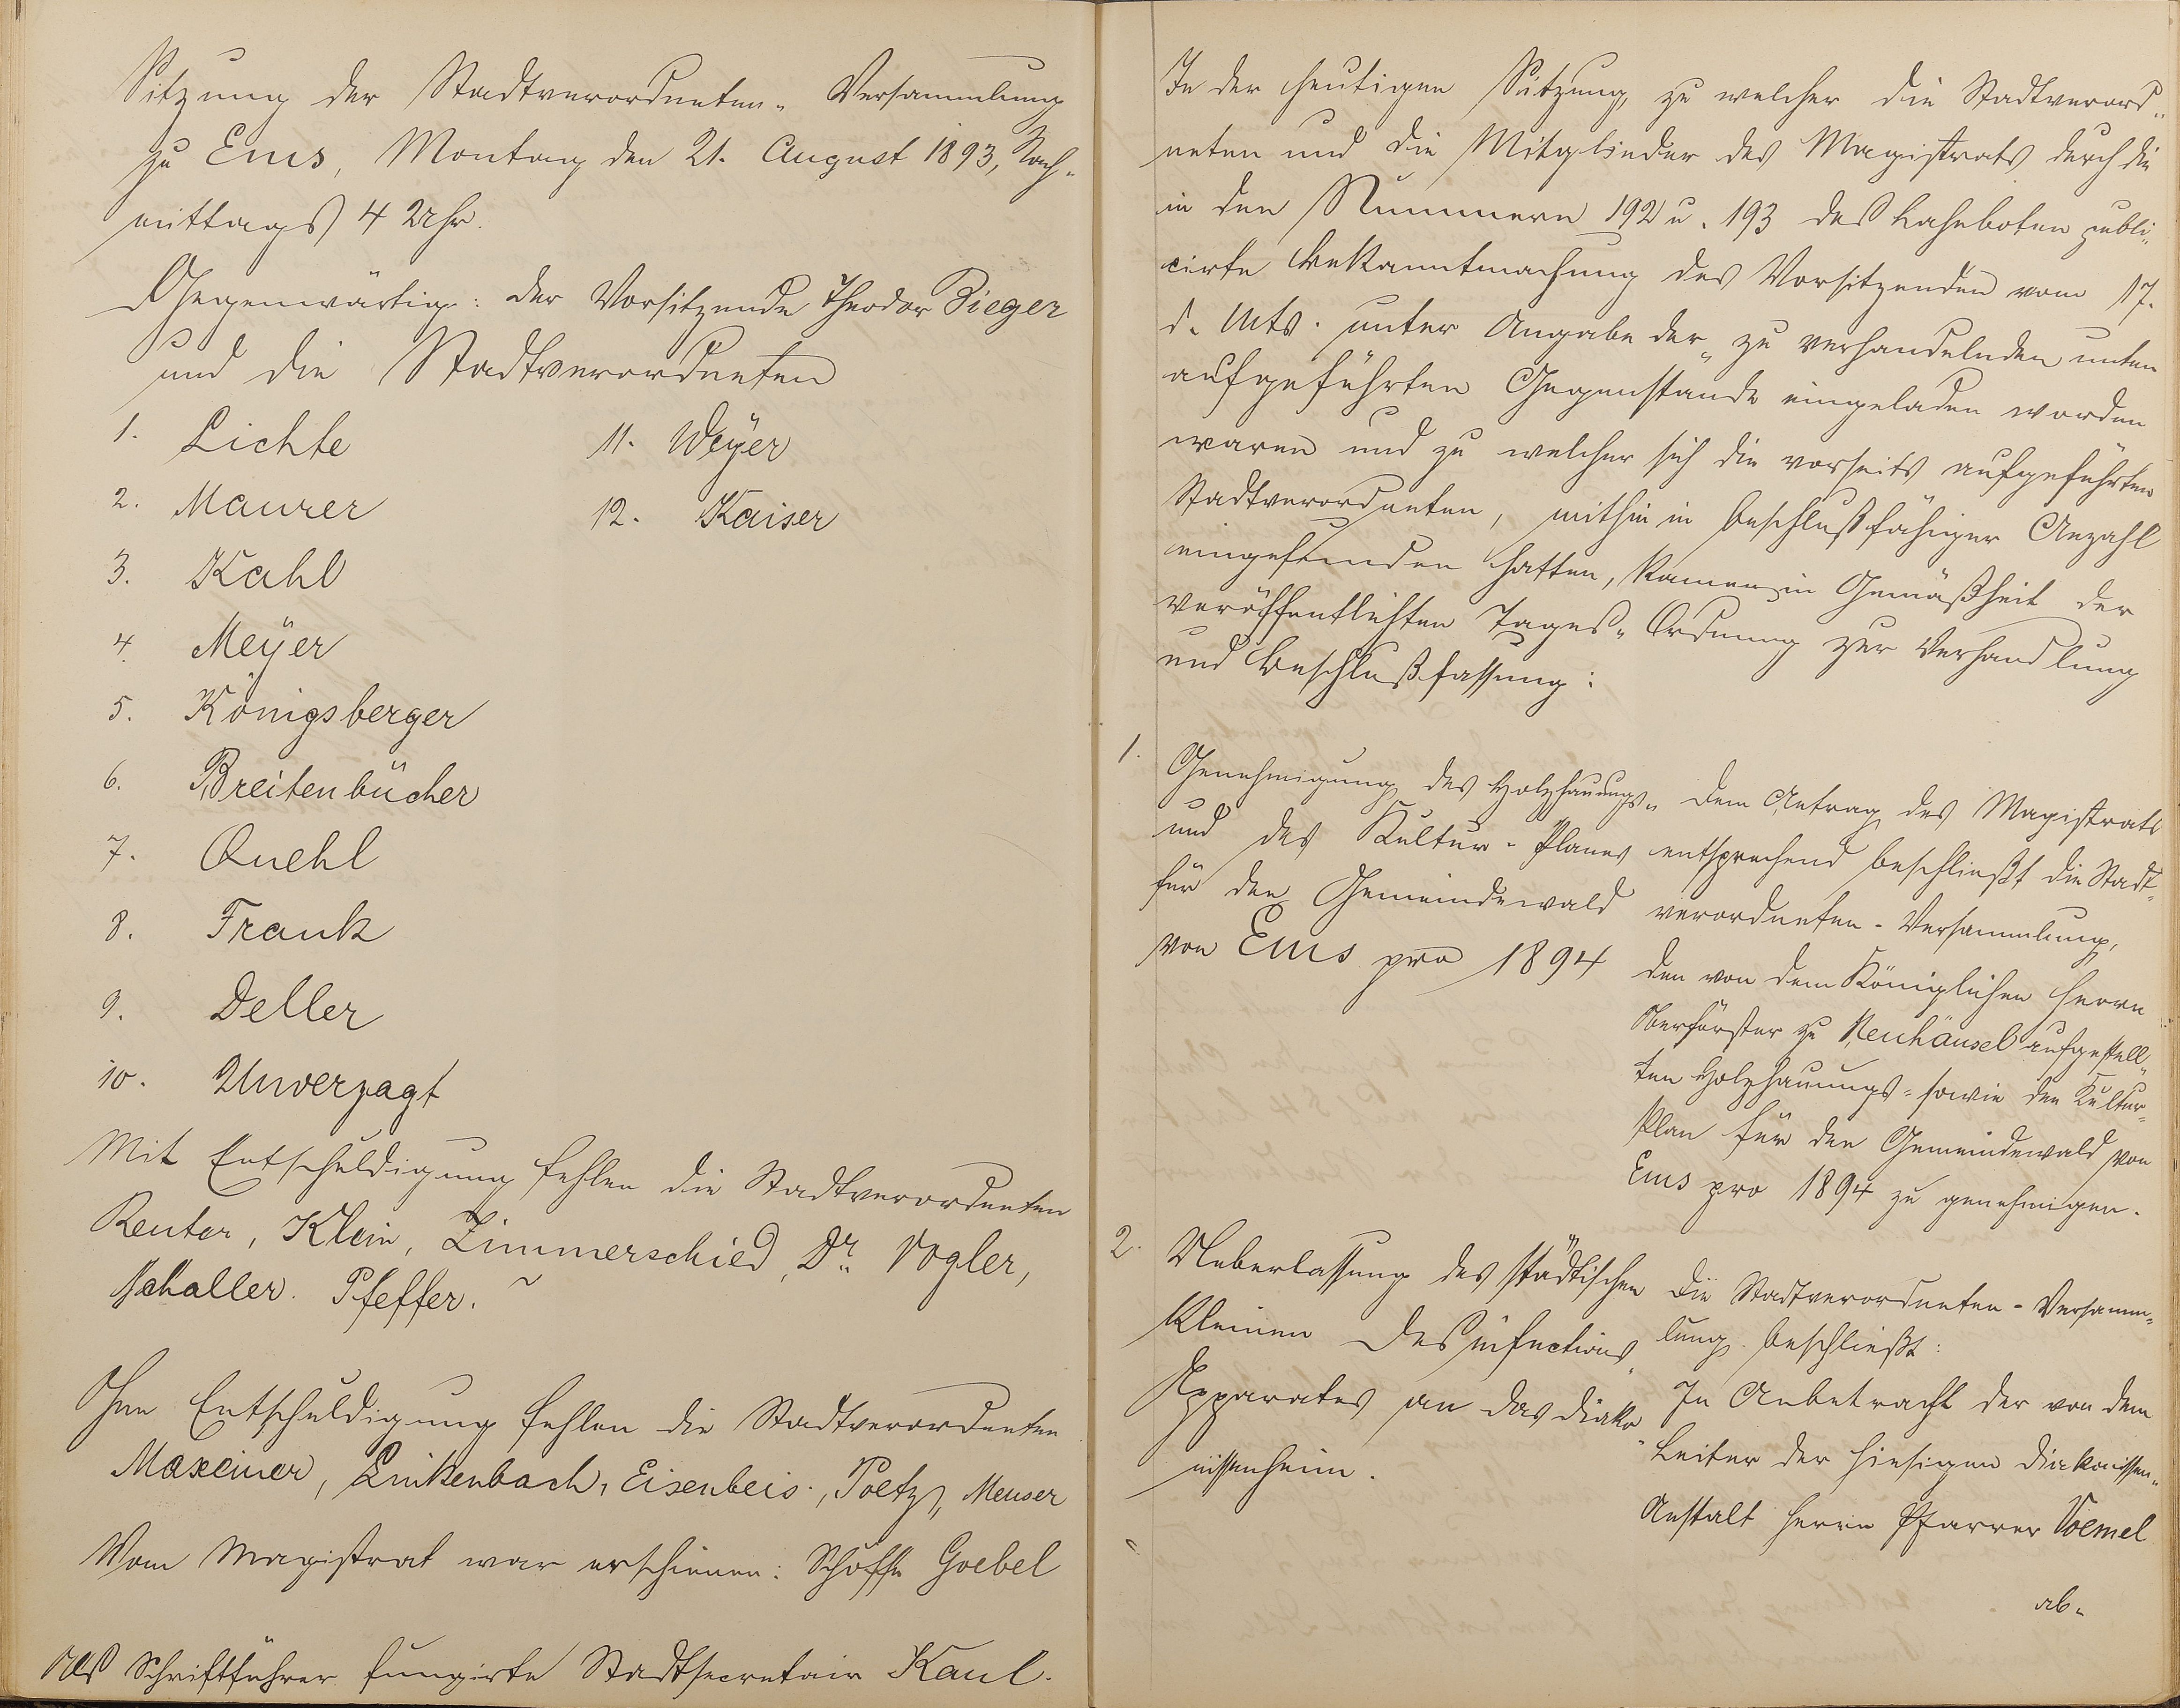 Sitzung der Stadtverordneten-Versammlung
zu Ems, Montag den 21. August 1893, Nach-
mittags 4 Uhr.
Gegenwärtig: der Vorsitzende Theodor Bieger
und die Stadtverordneten
1. Lichte
2. Maurer
3. Kahl
4. Meÿer
5. Königsberger
6. Breitenbücher
7. Quehl
8. Frank
9. Deller
10. Unverzagt
11. Weÿer
12. Kaiser
Mit Entschuldigung fehlen die Stadtverordneten
Reuter, Klein, Zimmerschied, Dr. Vogler,
Schaller. Pfeffer.
Ohne Entschuldigung fehlen die Stadtverordneten
Maxeiner, Linkenbach, Eisenbeis, Poetz, Meuser
Vom Magistrat war erschienen: Schöffe Goebel
Als Schriftführer fungirte Stadtsecretair Kaul.
In der heutigen Sitzung, zu welcher die Stadtverord-
neten und die Mitglieder des Magistrats durch die
in den Nummern 192 u. 193 des Lahnboten publi-
cirte Bekanntmachung des Vorsitzenden vom 17.
d. Mts. unter Angabe der zu verhandelnden unten
aufgeführten Gegenstände eingeladen worden
waren und zu welcher sich die vorseits aufgeführten
Stadtverordneten, mithin in beschlußfähiger Anzahl
eingefunden hatten, kamen in Gemäßheit der
veröffentlichten Tages-Ordnung zur Verhandlung
und Beschlußfassung:
1. Genehmigung des Holzhauungs-
und des Kultur-Planes
für den Gemeindewald
von Ems pro 1894
Dem Antrag des Magistrats
entsprechend beschließt die Stadt-
verordneten-Versammlung,
den von dem Königlichen Herrn
Oberförster zu Neuhäusel aufgestell-
ten Holzhauungs- sowie den Kultur-
Plan für den Gemeindewald von
Ems pro 1894 zu genehmigen.
2. Ueberlassung des städtischen
kleinen Desinfections-
Apparates an das Diako-
nissenheim.
Die Stadtverordneten-Versamm-
lung beschließt:
In Anbetracht der von dem
Leiter der hiesigen Diakonissen-
Anstalt Herrn Pfarrer Voemel
ab-